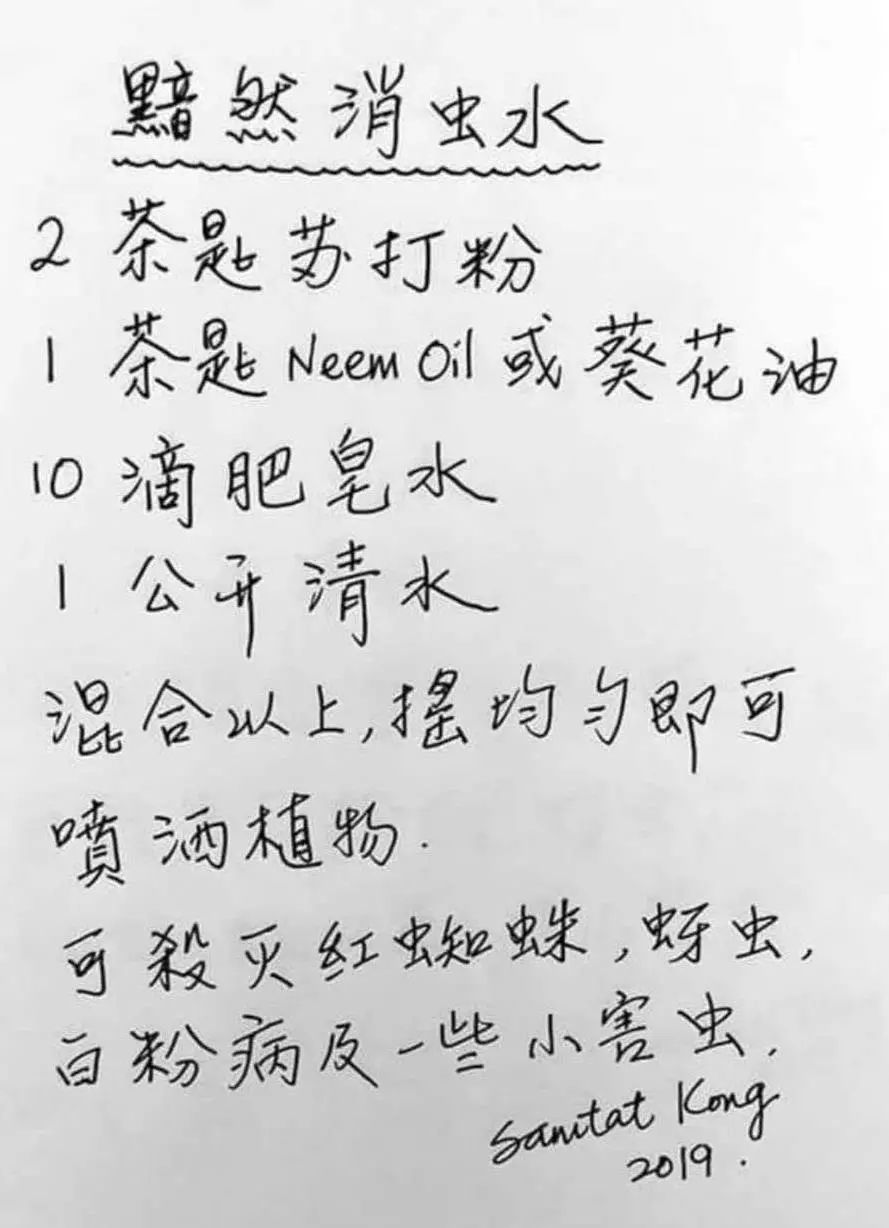 黯然消虫水
2 茶匙苏打粉
1 茶匙 Neem Oil 或葵花油
10 滴肥皂水
1 公升清水
混合以上,摇均匀即可
噴洒植物.
可殺灭红蜘蛛,蚜虫,
白粉病及一些小害虫.
Sanitat Kong
2019.